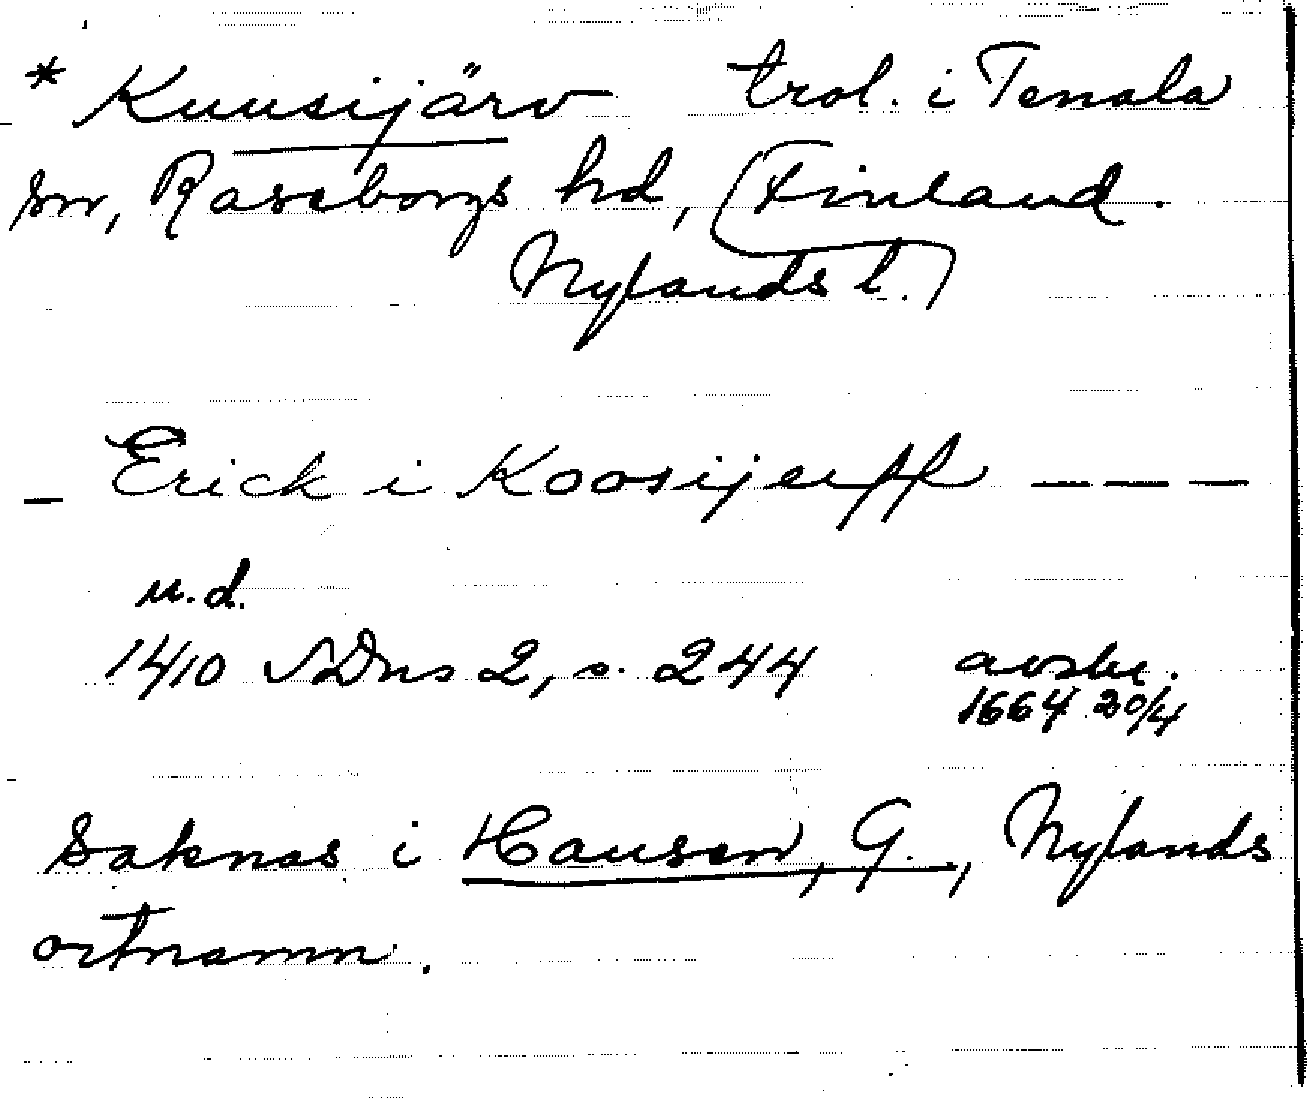 * Kuusijärv trol. i Tenala
sn, Raseborgs hd, (Finland.
Nylands l.)
Erick i Koosijerff — — —
u.d.
1410 SDns 2, s. 244 avskr.
1664 20/4
Saknas i Hausen, G., Nylands
ortnamn.